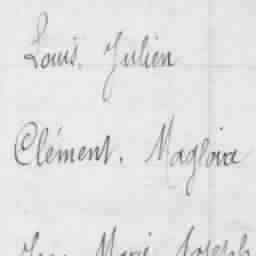 Louis. Julien
Clément. Magloire
Marie Joseph